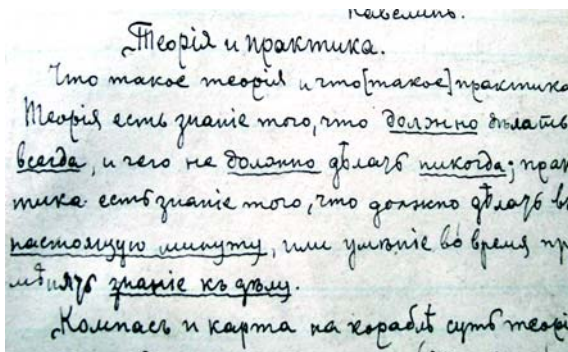 Кавелинъ.
Теорія и практика.
Что такое теорія и что [такое] практика
Теорія есть знаніе того, что должно дѣлать
всегда, и чего не должно дѣлать никогда; прак
тика есть знаніе того, что должно дѣлать въ
настоящую минуту, или умѣніе во время пр
мѣнять знаніе къ дѣлу.
Компасъ и карта на кораблѣ суть теорі